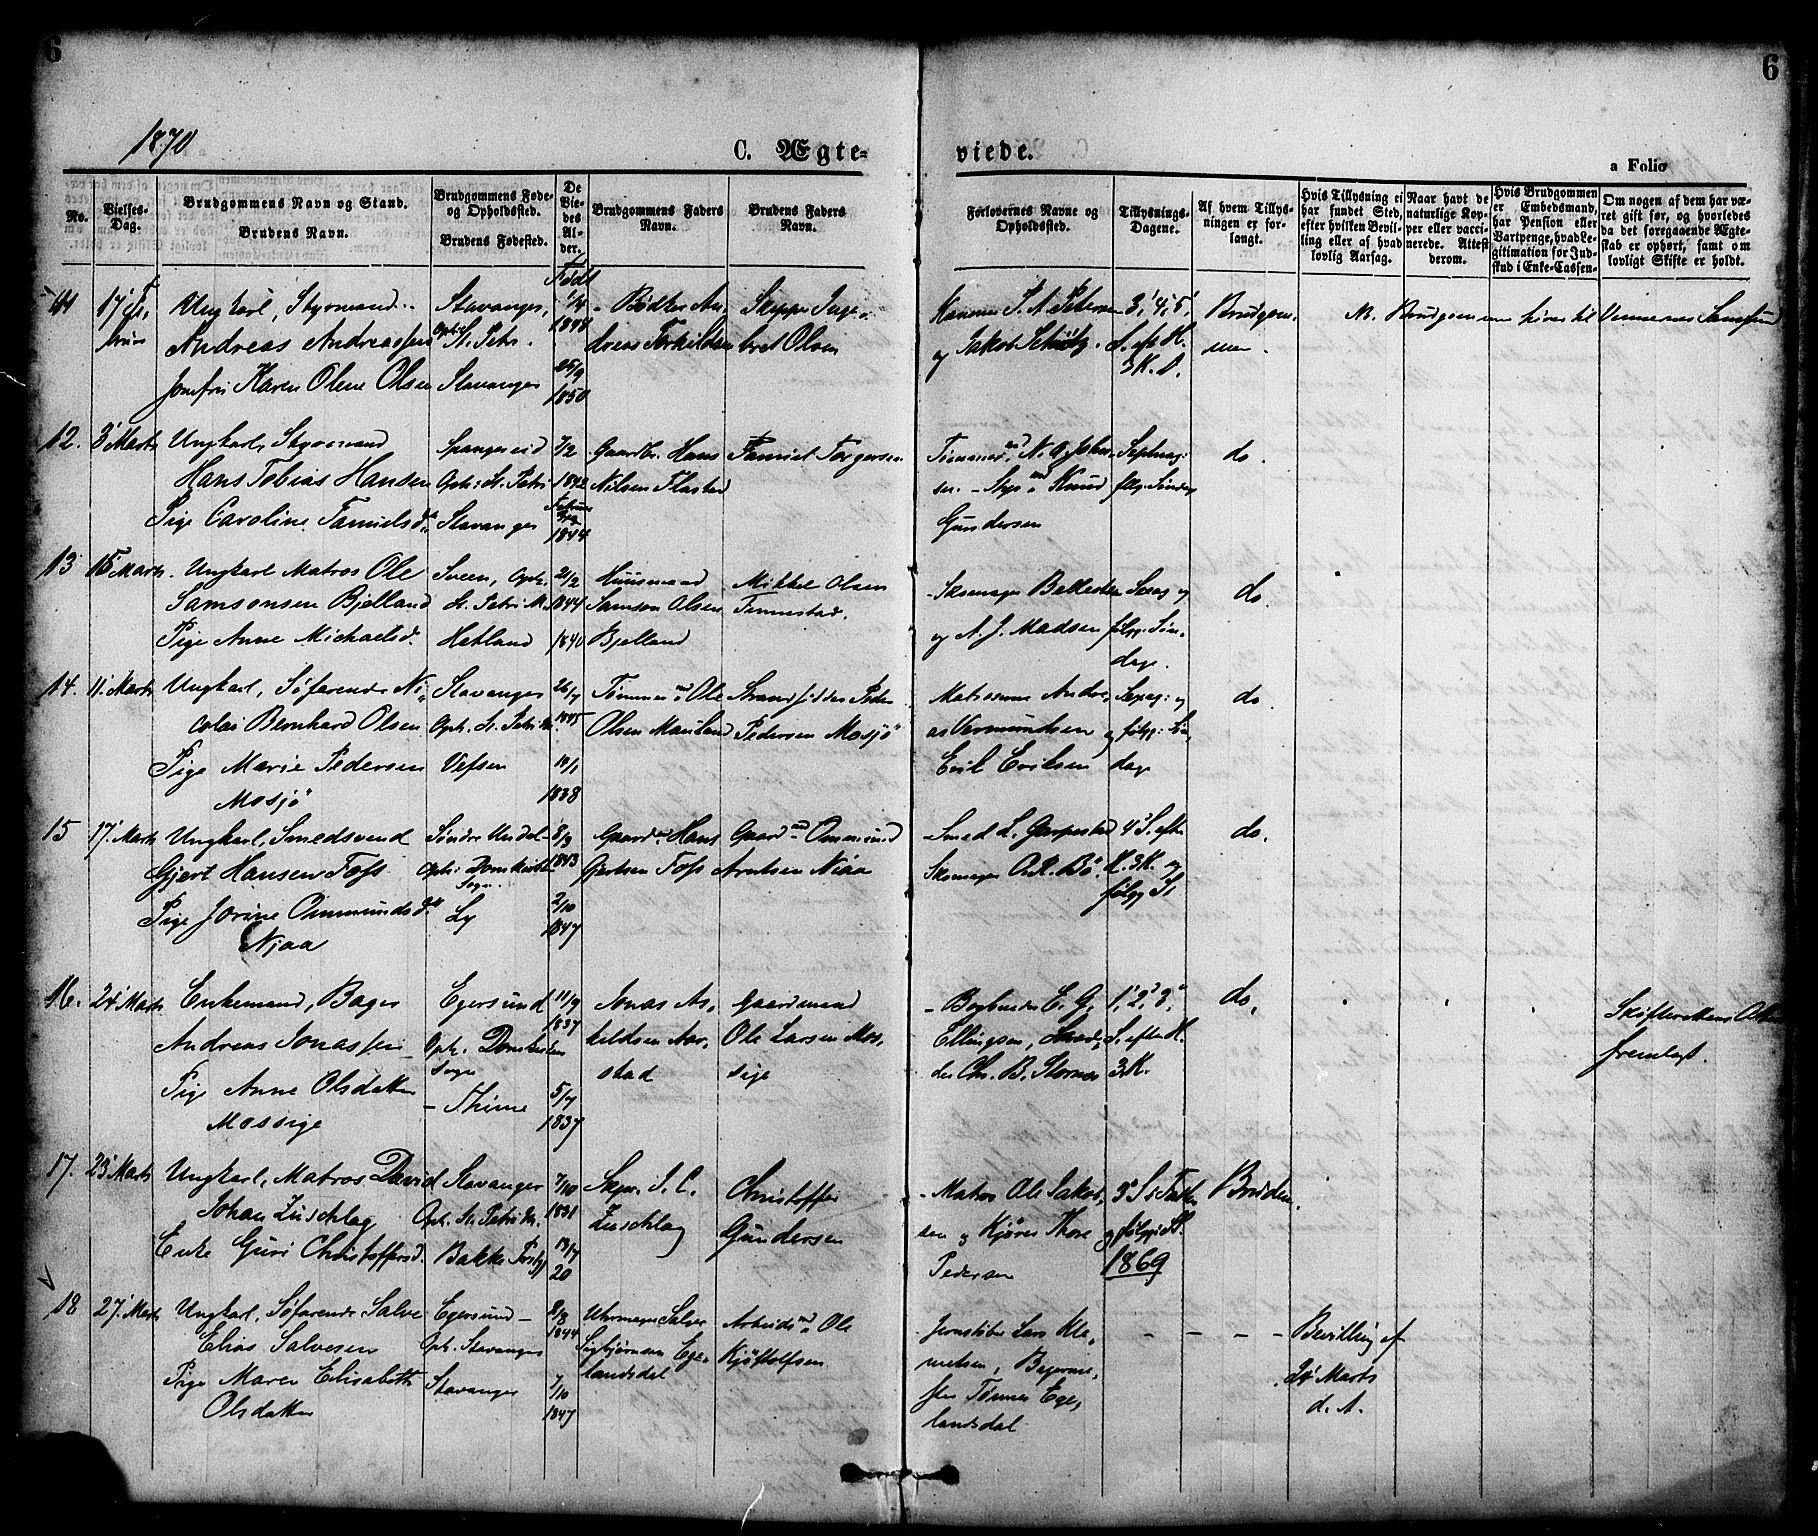 6
6
1870
C. Ægte-
viede.
a Folio
No.
Vielses-
Dag.
Brudgommens Navn og Stand.
Brudens Navn.
Brudgommens Føde-
og Opholdssted.
Brudens Fødested.
De
Vie-
des
Al-
der.
Brudgommens Faders
Navn.
Brudens Faders
Navn.
Forlovernes Navne og
Opholdssted.
Tillysnings-
Dagene.
Af hvem Tillys-
ningen er for-
langt.
Hvis Tillysning ei
har fundet Sted,
efter hvilken Bevil-
ling eller af hvad
lovlig Aarsag.
Naar havt de
naturlige Kop-
per eller vacci-
nerede. Attest
derom.
Hvis Brudgommen
er Embedsmand,
har Pension eller
Vartpenge, hvad Le-
gitimation for Ind-
skud i Enke-Cassen.
Om nogen af dem har væ-
ret gift før, og hvorledes
da det foregaaende Ægte-
skab er ophørt, samt om
lovligt Skifte er holdt.
Født
Ungkarl, Styrmand
Andreas Andreassen
Karen Olene Olsen
Stavanger,
Oph: St. Petri.
Stavanger
1848
25/9
1850
Bødker An-
dreas Torkildsen
Skipper Inge-
bret Olsen
P. A. Petersen
og Jakob Schiötz.
3, 4, 5,
S. eft H.
3 K. D.
Brudgom-
men.
M. Brudgommen hører til Vennernes Samfund
12. 3 Marts
Ungkarl, Styrmand
Hans Tobias Hansen
Pige Caroline
Oph: St. Petri
Stavanger
7/2
1842
1844
Gaardbr. Hans
Nilsen
Torgersen
Tømmermd N. A. John-
sen. Knud
Gundersen
følg. Søndag
do.
13 15 Marts.
Ungkarl Matros Ole
Samsonsen Bjelland
Pige Anne Michaelsd.
Sveen, Oph:
St. Petri M.
Hetland
21/2
1844
1840
Huusmand
Samson Olsen
Bjelland
Mikkel Olsen
Tinnestad.
Skomager
og A. J. Madsen
Sexag og
følg. Søn-
dage.
do.
14. 11 Marts
Ungkarl, Søfarende Ni-
colai Bernhard Olsen
Pige Marie Pedersen
Mosjö
Stavanger
Oph. St. Petri M.
Vefsen
1845
1838
Tømmermd Ole
Olsen Mauland
Strandsidder Peder
Pedersen Mosjö
Matroserne Andre-
as Vermundsen og
Erik Eriksen
Sexag: og
følg: Søn-
dag
do.
15 17 Marts
Ungkarl, Smedsvend
Gjert Hansen Foss
Pige Jorine Ommundsd.
Njaa
Søndre Undal
Oph: Domkirke
Sogn.
Ly
8/3
1843
2/10
1847
Gaardmd Hans
Gjertsen Foss
Gaardmd Ommund
Arntsen Niaa
Smed L. Garpestad
Skomager
4 S. efter
H. 3 K. og
følg S.
do.
16. 24 Marts
Enkemand, Bager
Andreas Jonassen
Pige Anne Olsdatter
Mossige
Egersund
Oph: Domkirken
Sogn
Thime
11/9
1837
5/7
1837
Jonas As-
keldsen Aar-
stad
Gaardmand
Ole Larsen Mos-
sige
Bogbinder E. G.
Ellingsen,
1, 2, 3
S. efter H.
3 K.
do.
Skifterettens Attest
fremlagt.
17. 25 Marts
Ungkarl, Matros David
Johan Zuschlag
Enke Guri Christoffersd.
Stavanger
Oph. St. Petri M.
7/10
1831
20
Skpr. J. C.
Zuschlag
Christoffer
Gundersen
Matros Ole Jakob-
sen og Thore
Pedersen
3 S i Faste
og følg: S.
1869
Bruden.
18 27 Marts
Ungkarl, Søfarende Salve
Elias Salvesen
Pige Maren Elisabeth
Olsdatter
Egersund
Oph. Stavanger
Stavanger
8/8
1844
7/10
1847
Uhrmager Salve
Sigbjørnsen Ege-
landsdal
Arbeidsmd Ole
Kjöstolfsen
Jernstøber Lars Kle-
metsen,
Tønnes Ege-
landsdal
Bevilling af
24 Marts
d. A.